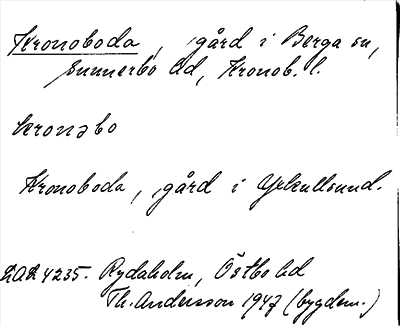 Kronoboda, gård i Berga sn,
Sunnerbo hd, Kronob. l.
kronəbo
Kronoboda, gård i
4235. Rydaholm, Östbo hd
Th. Andersson 1947 (bygdem.)